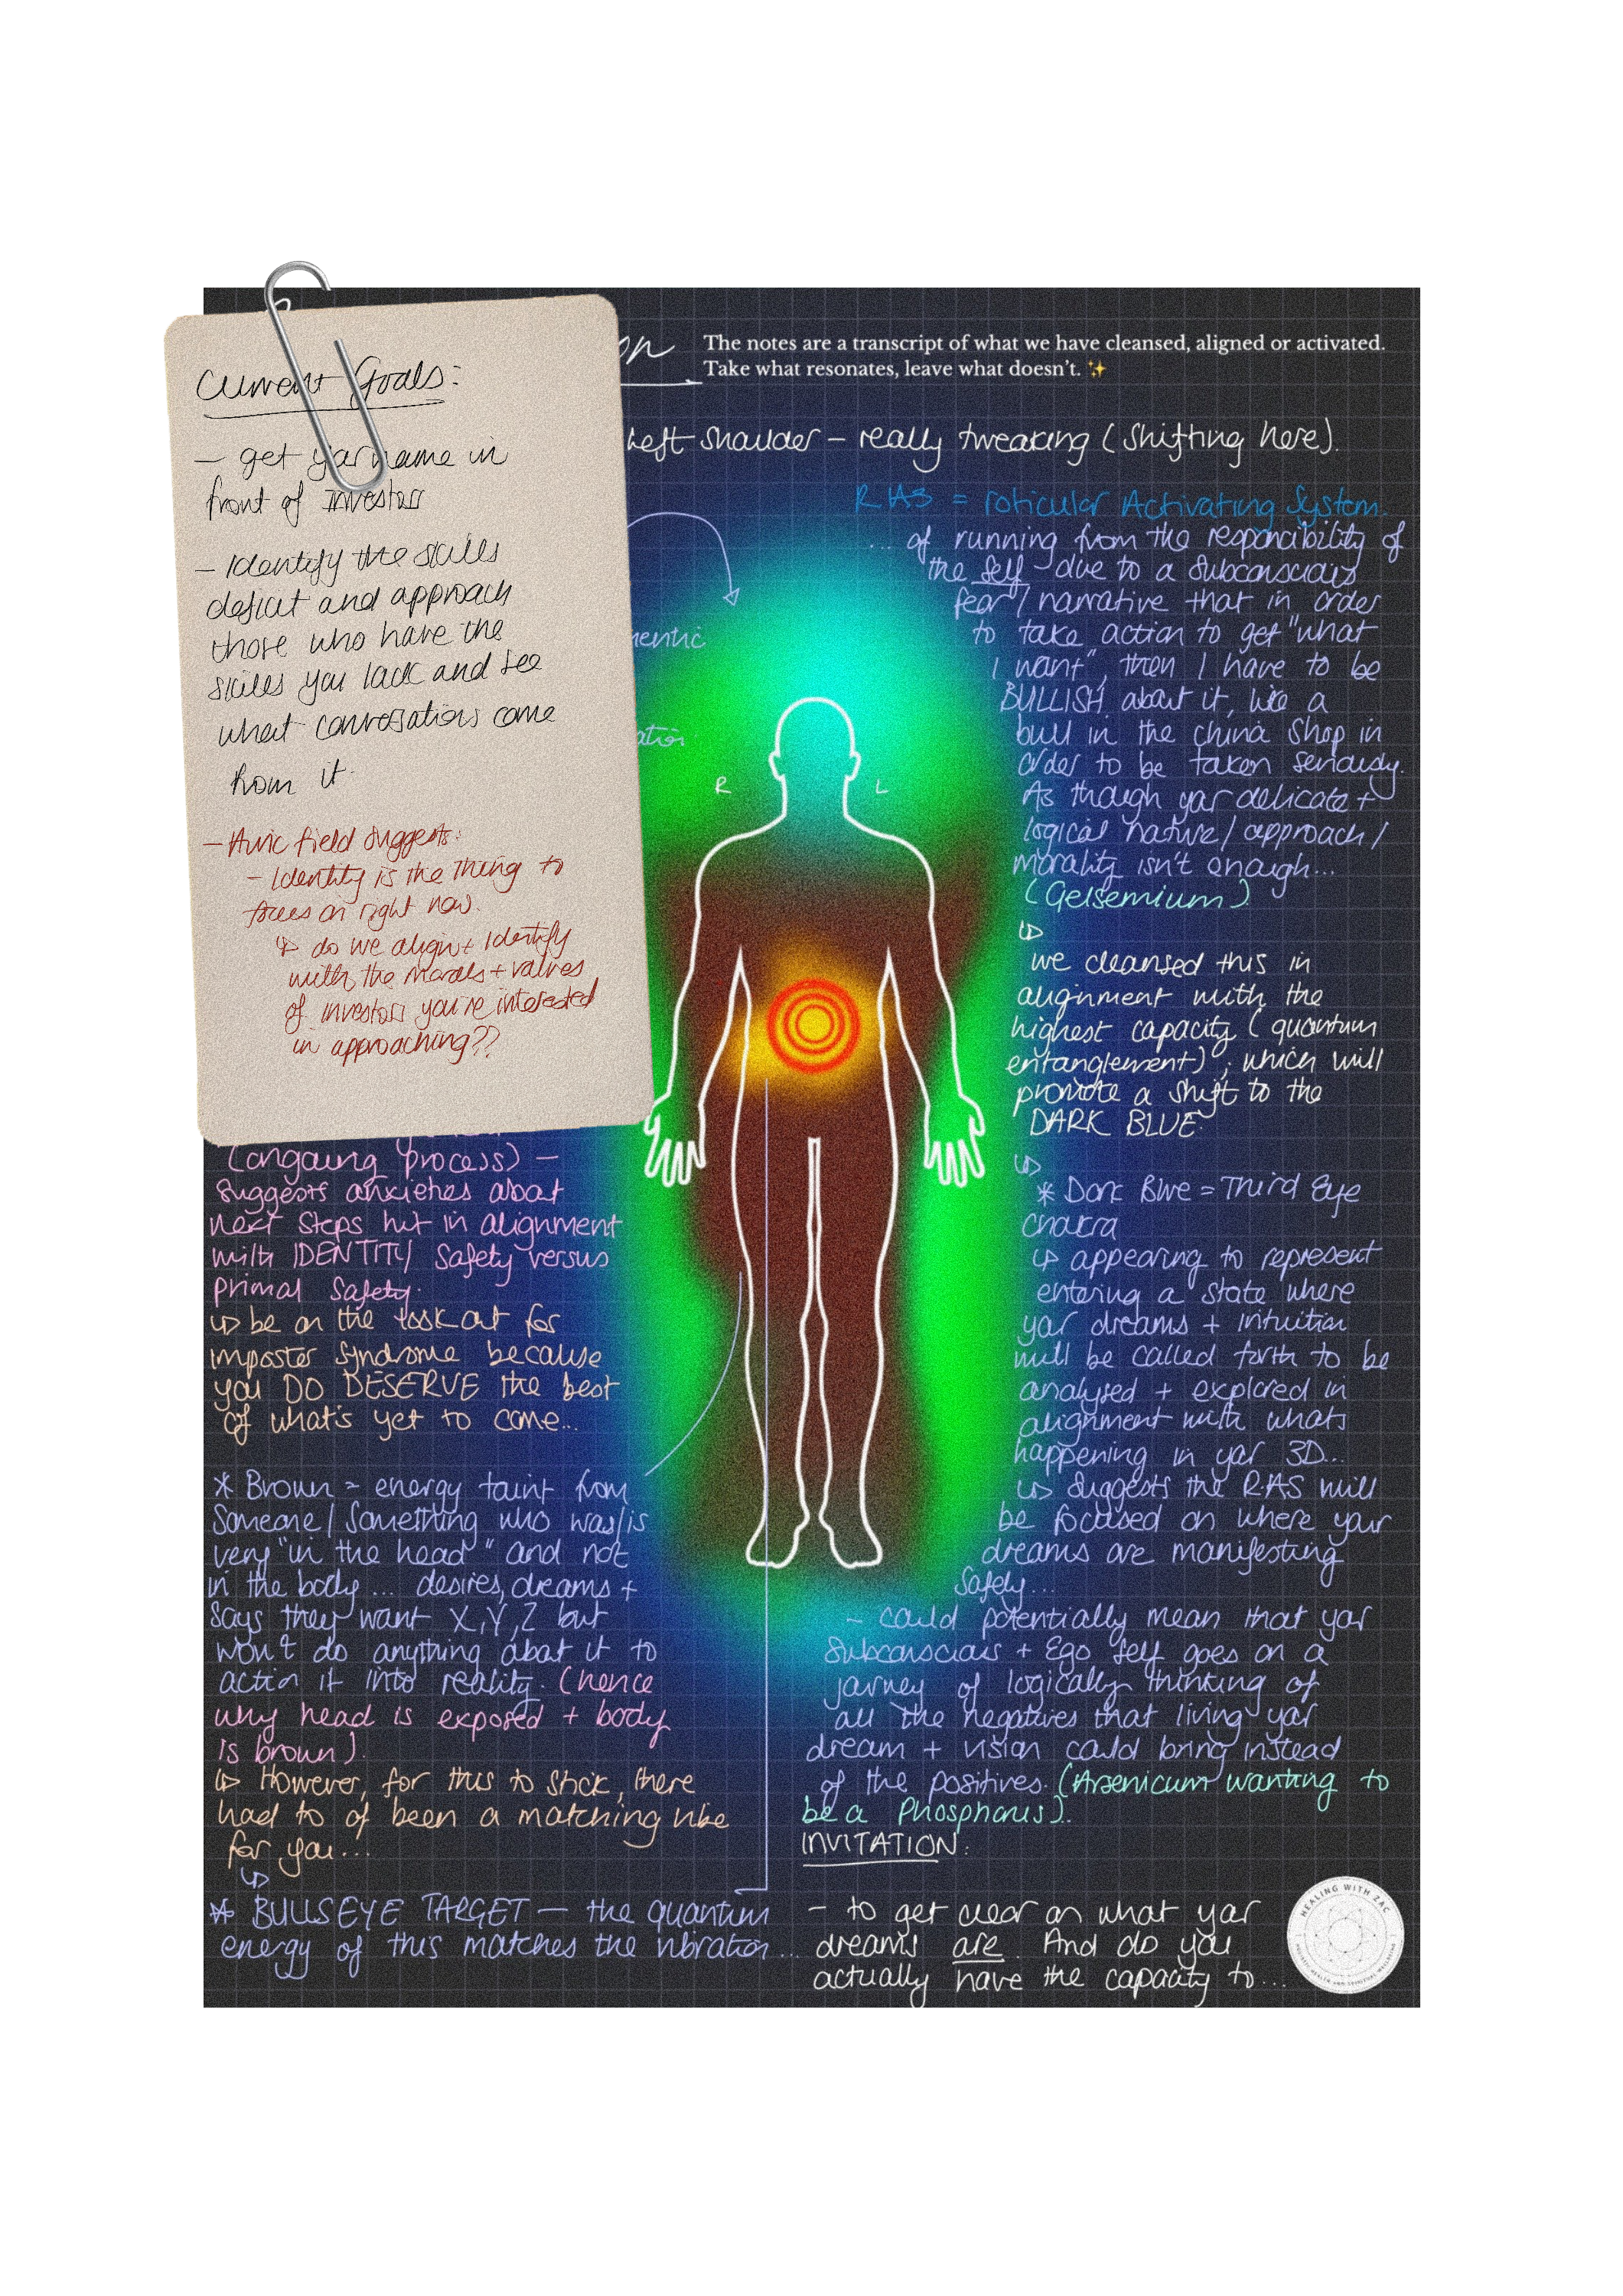 Current Goals:
– get yar name in
front of investors
– Identify the skills
deficit and approach
those who have the
skills you lack and see
what conversations come
from it.
– Auric field suggests:
– Identity is the thing to
focus on right now.
↳ do we align + Identify
with the morals + values
of investors you're interested
in approaching??
on
The notes are a transcript of what we have cleansed, aligned or activated.
Take what resonates, leave what doesn't. ✨
Left shoulder – really tweaking (shifting here).
hentic
ation
R
L
(ongoing process) –
suggests anxieties about
next steps hit in alignment
with IDENTITY safety versus
primal safety.
↳ be on the look out for
imposter syndrome because
you DO DESERVE the best
of what's yet to come...
* Brown = energy taint from
someone/something who was/is
very "in the head" and not
in the body... desires, dreams +
says they want X,Y,Z but
won't do anything about it to
action it into reality. (hence
why head is exposed + body
is brown).
↳ However, for this to stick, there
had to of been a matching vibe
for you...
↳
* BULLSEYE TARGET – the quantum
energy of this matches the vibration...
RAS = roticular Activating System.
... of running from the responcibility of
the self due to a subconscious
fear/narrative that in order
to take action to get "what
I want", then I have to be
BULLISH about it, like a
bull in the china shop in
order to be taken seriously.
As though yar delicate +
logical nature/approach/
morality isn't enough...
(Gelsemium)
↳
we cleansed this in
alignment with the
highest capacity (quantum
entanglement); which will
promote a shift to the
DARK BLUE
↳
* Dark Blue = Third Eye
chakra
↳ appearing to represent
entering a state where
yar dreams + intuition
will be called forth to be
analysed + explored in
alignment with whats
happening in yar 3D...
↳ suggests the RAS will
be focused on where your
dreams are manifesting
safely...
– could potentially mean that yar
subconscious + Ego self goes on a
journey of logically thinking of
all the negatives that living yar
dream + vision could bring instead
of the positives. (Arsenicum wanting to
be a Phosphorus).
INVITATION:
– to get clear on what yar
dreams are. And do you
actually have the capacity to...
HEALING WITH ZAC